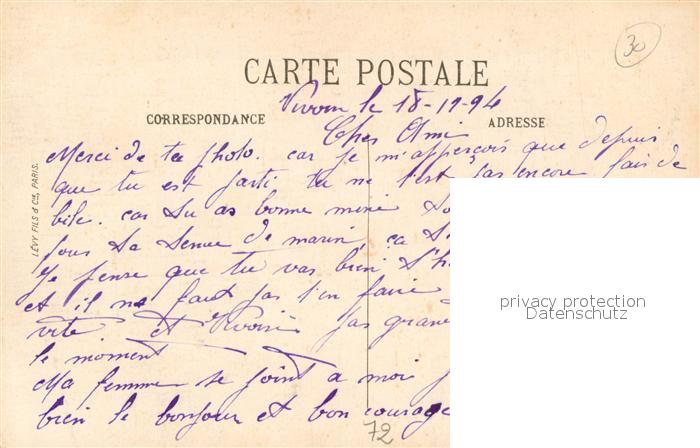 30
CARTE POSTALE
le 18-11-94
CORRESPONDANCE
ADRESSE
Cher Ami
Merci de ta photo. car je m'apperçois que depuis
que tu est parti, tu ne t'est pas encore fais de
bile. car tu as bonne mine
sous ta tenue de marin, ca
Je pense que tu vas bien
et il ne faut pas t'en faire
vite et pas grand
le moment
Ma femme se joint a moi
bien le bonjour et bon courage
LÉVY FILS & Cie, PARIS.
72
privacy protection
Datenschutz